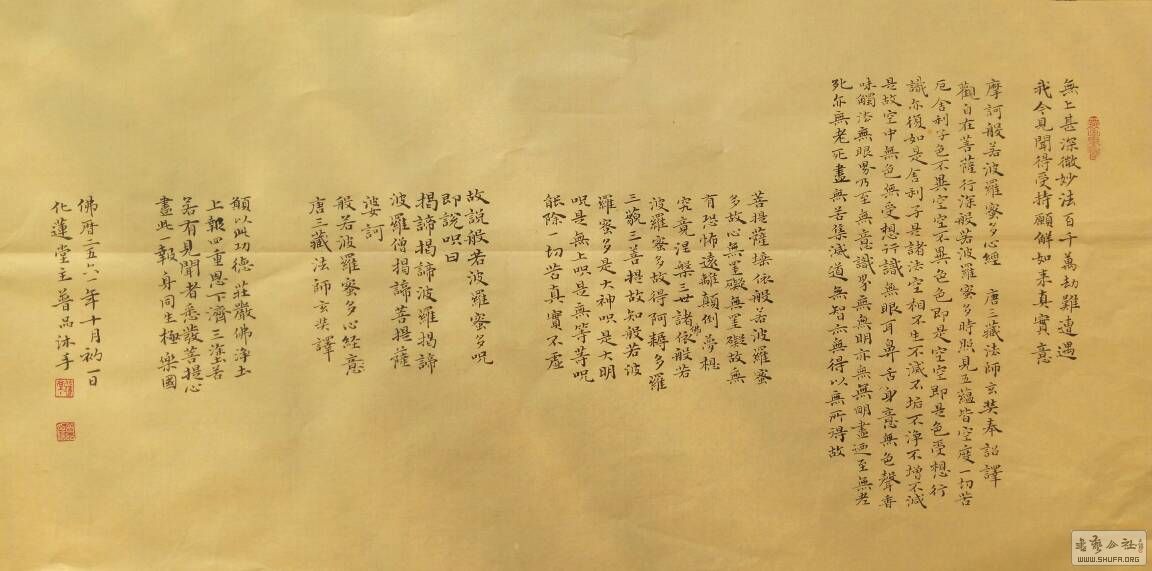 無上甚深微妙法百千萬劫難遭遇
我今見聞得受持願解如来真實意
摩訶般若波羅蜜多心經 唐三藏法師玄奘奉詔譯
觀自在菩薩行深般若波羅蜜多時照見五蘊皆空度一切苦
厄舍利子色不異空空不異色色即是空空即是色受想行
識亦復如是舍利子是諸法空相不生不滅不垢不淨不增不減
是故空中無色無受想行識無眼耳鼻舌身意無色聲香
味觸法無眼界乃至無意識界無無明亦無無明盡迺至無老
死亦無老死盡無苦集滅道無智亦無得以無所得故
菩提薩埵依般若波羅蜜
多故心無罣礙無罣礙故無
有恐怖遠離顛倒夢想
究竟涅槃三世諸佛依般若
波羅蜜多故得阿耨多羅
三藐三菩提故知般若波
羅蜜多是大神呪是大明
呪是無上呪是無等等呪
能除一切苦真實不虛
故説般若波羅蜜多呪
即說呪曰
揭諦揭諦波羅揭諦
波羅僧揭諦菩提薩
婆訶
般若波羅蜜多心經意
唐三藏法師玄奘譯
願以此功德 莊嚴佛淨土
上報四重恩下濟三塗苦
若有見聞者悉發菩提心
盡此一報身同生極樂國
佛曆二五六一年十月初一日
化蓮堂主普品沐手
WWW.SHUFA.ORG